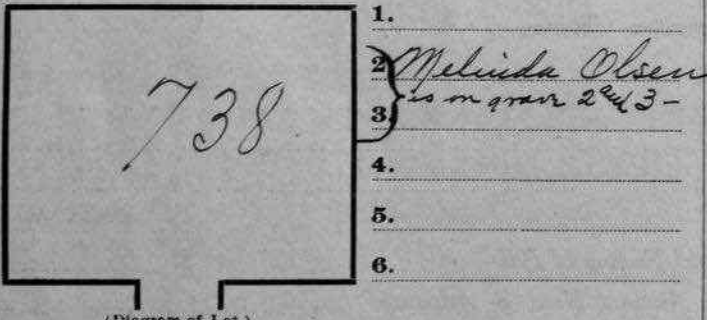 738
1.
2. Melinda Olsen
is on grave 2 and 3 -
3.
4.
5.
6.
(Diagram of Lot.)